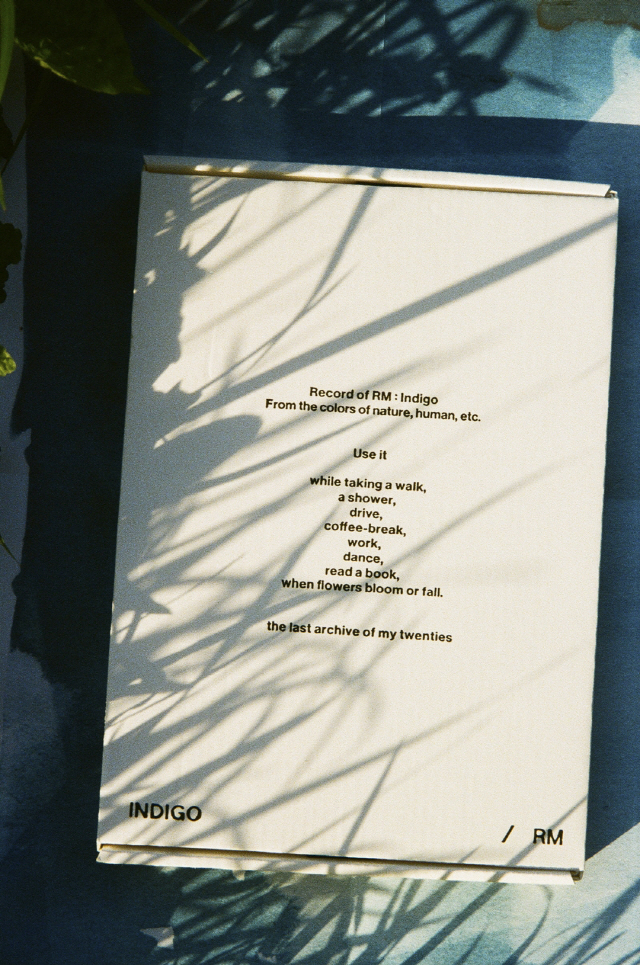 Record of RM : Indigo
From the colors of nature, human, etc.
Use it
while taking a walk,
a shower,
drive,
coffee-break,
work,
dance,
read a book,
when flowers bloom or fall.
the last archive of my twenties
INDIGO
/ RM